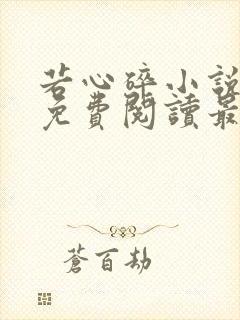 若心碎小說
免費閱讀最
蒼百劫